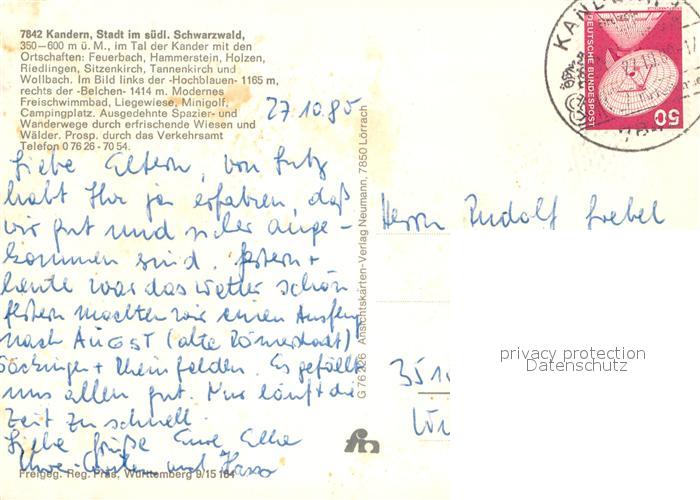 7842 Kandern, Stadt im südl. Schwarzwald,
350—600 m ü. M., im Tal der Kander mit den
Ortschaften: Feuerbach, Hammerstein, Holzen,
Riedlingen, Sitzenkirch, Tannenkirch und
Wollbach. Im Bild links der -Hochblauen- 1165 m,
rechts der -Belchen- 1414 m. Modernes
Freischwimmbad, Liegewiese, Minigolf,
Campingplatz. Ausgedehnte Spazier- und
Wanderwege durch erfrischende Wiesen und
Wälder. Prosp. durch das Verkehrsamt
Telefon 0 76 26 - 70 54.
27.10.85
Liebe Eltern, von
habt Ihr ja erfahren, daß
wir gut und sicher ange-
kommen sind. Gestern +
heute war das Wetter schön
Gestern machten wir einen Ausflug
nach AUGST (alte Römerstadt)
Säckingen + Rheinfelden. Es gefällt
uns allen gut. Nur läuft die
Zeit zu schnell.
Liebe Grüße Eure Elke
und Hasso
Freigeg. Reg. Präs. Württemberg 9/15 164
G 76 226 Ansichtskarten-Verlag Neumann, 7850 Lörrach
KANDERN
DEUTSCHE BUNDESPOST
50
Herrn Rudolf
351
privacy protection
Datenschutz